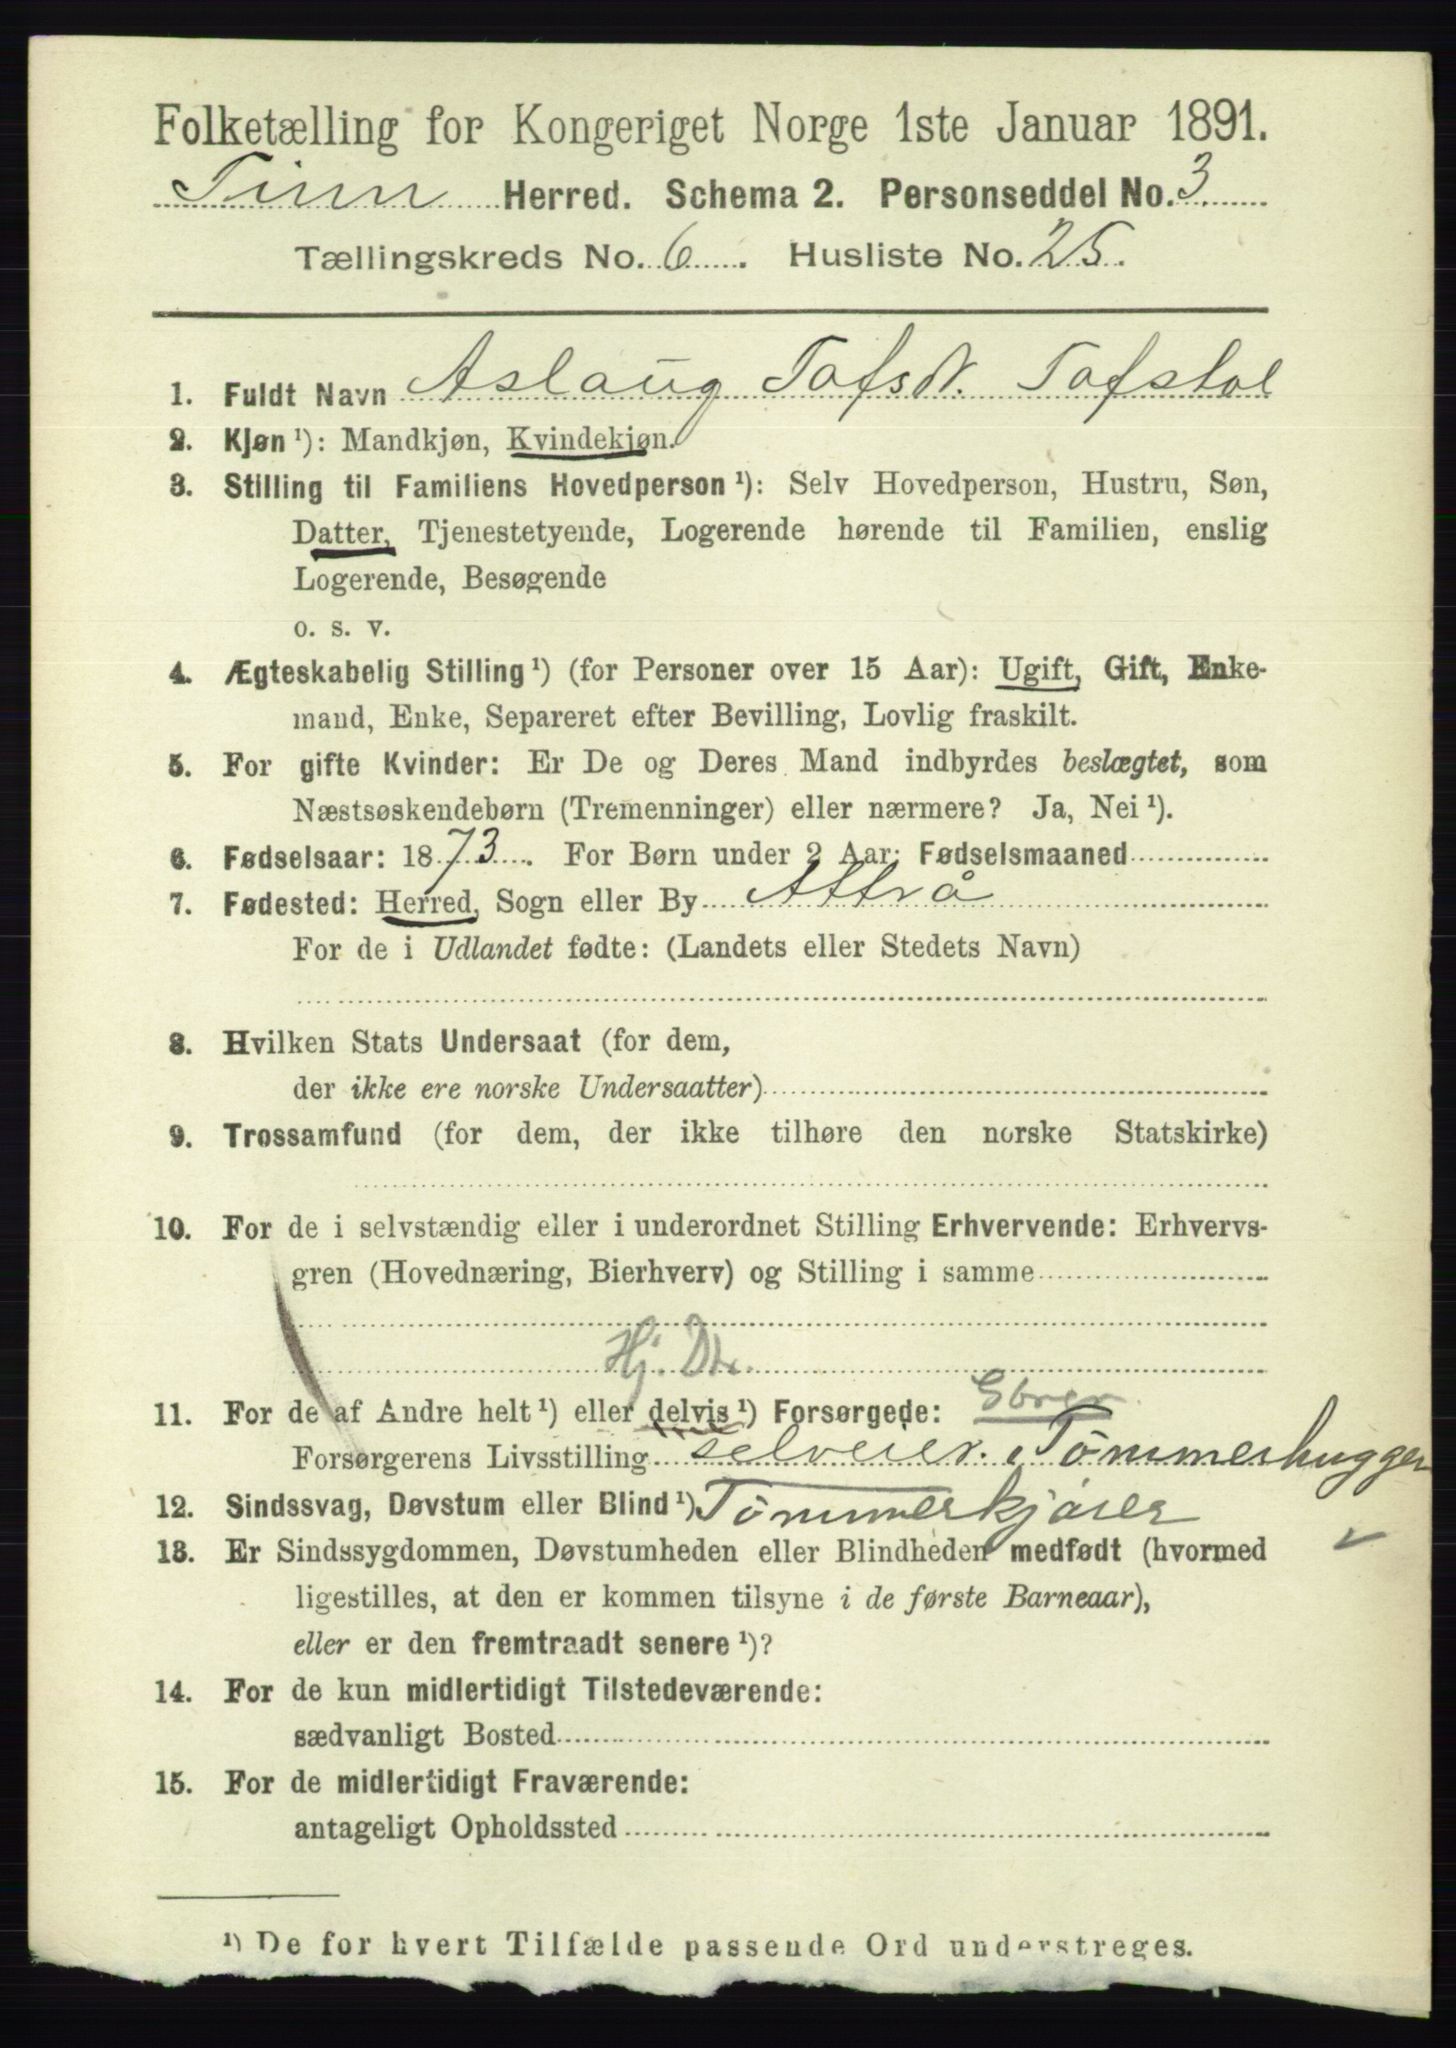 Folketælling for Kongeriget Norge 1ste Januar 1891.
Tinn Herred. Schema 2. Personseddel No. 3.
Tællingskreds No. 6. Husliste No. 25.
1. Fuldt Navn Aslaug Tofsdt. Tofstol
2. Kjøn ¹): Mandkjøn, Kvindekjøn.
3. Stilling til Familiens Hovedperson ¹): Selv Hovedperson, Hustru, Søn,
Datter, Tjenestetyende, Logerende hørende til Familien, enslig
Logerende, Besøgende
o. s. v.
4. Ægteskabelig Stilling ¹) (for Personer over 15 Aar): Ugift, Gift, Enke-
mand, Enke, Separeret efter Bevilling, Lovlig fraskilt.
5. For gifte Kvinder: Er De og Deres Mand indbyrdes beslægtet, som
Næstsøskendebørn (Tremenninger) eller nærmere? Ja, Nei ¹).
6. Fødselsaar: 1873. For Børn under 2 Aar: Fødselsmaaned
7. Fødested: Herred, Sogn eller By Attrå
For de i Udlandet fødte: (Landets eller Stedets Navn)
8. Hvilken Stats Undersaat (for dem,
der ikke ere norske Undersaatter)
9. Trossamfund (for dem, der ikke tilhøre den norske Statskirke)
10. For de i selvstændig eller i underordnet Stilling Erhvervende: Erhvervs-
gren (Hovednæring, Bierhverv) og Stilling i samme
Hj. Dtr.
11. For de af Andre helt ¹) eller delvis ¹) Forsørgede: Gbrer
Forsørgerens Livsstilling selveier. Tömmerhugger
12. Sindssvag, Døvstum eller Blind ¹) Tömmerkjörer
13. Er Sindssygdommen, Døvstumheden eller Blindheden medfødt (hvormed
ligestilles, at den er kommen tilsyne i de første Barneaar),
eller er den fremtraadt senere ¹)?
14. For de kun midlertidigt Tilstedeværende:
sædvanligt Bosted
15. For de midlertidigt Fraværende:
antageligt Opholdssted
¹) De for hvert Tilfælde passende Ord understreges.